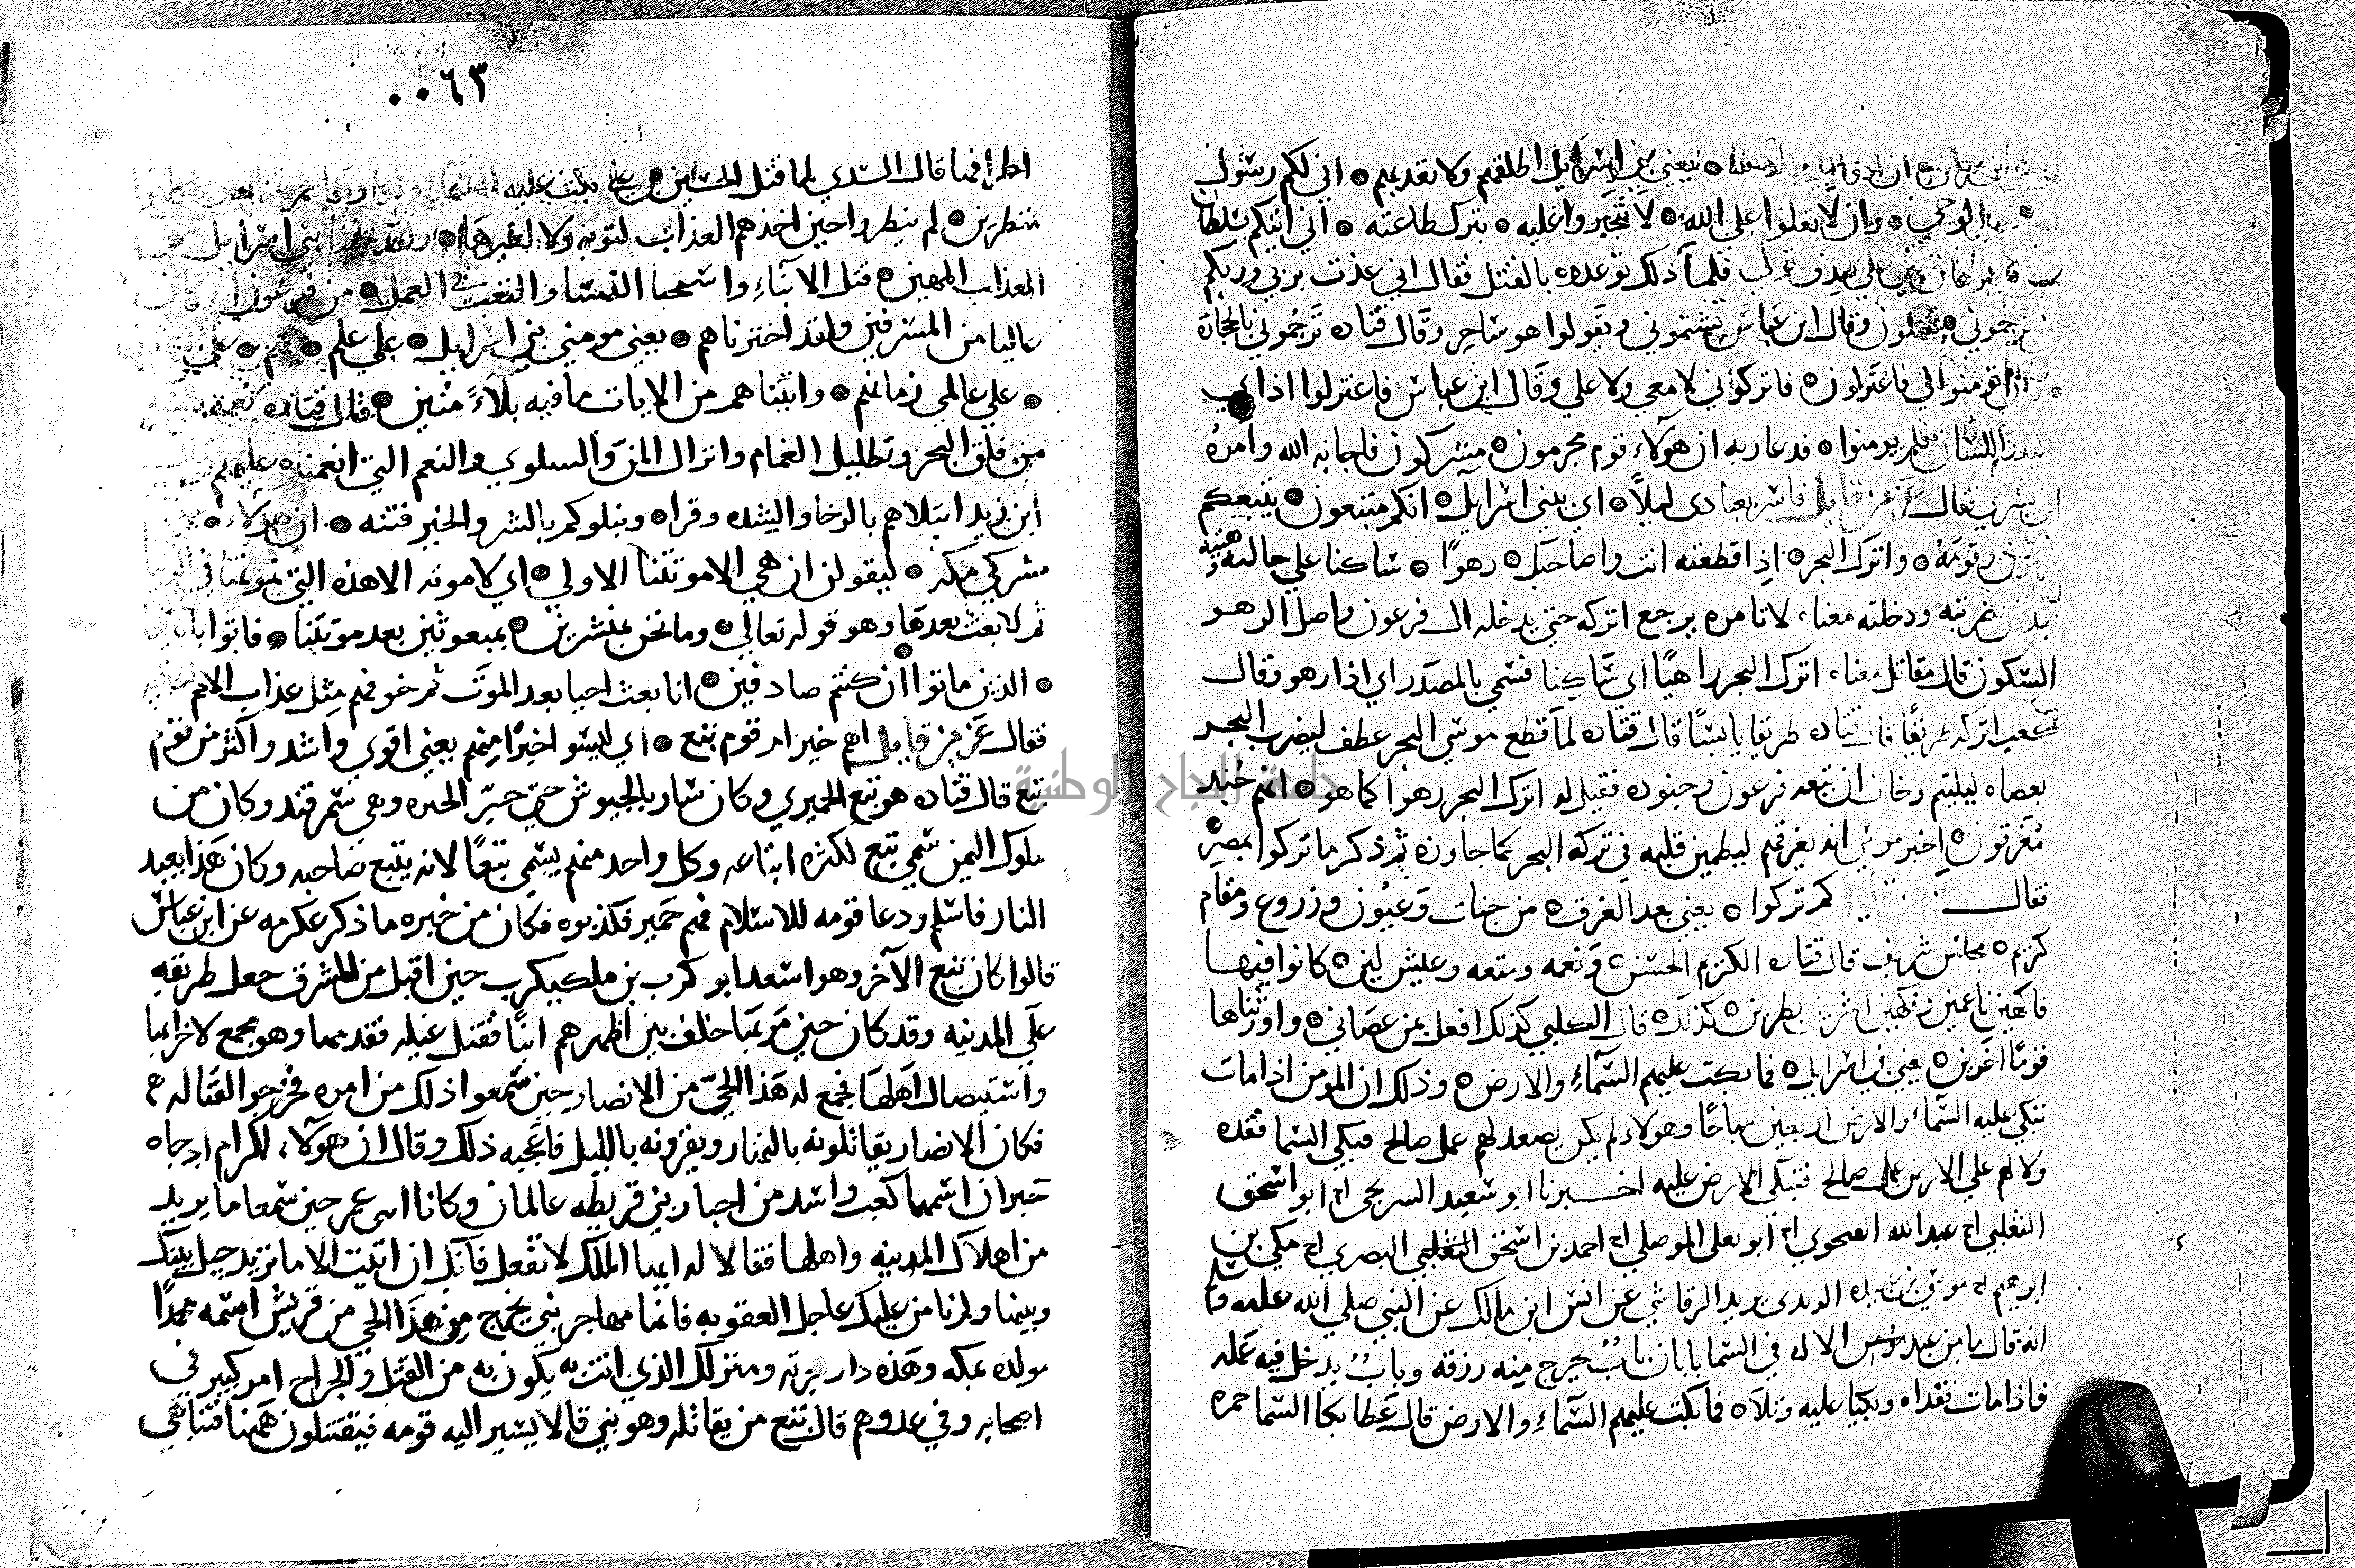 يعني بني اسرايل اطلقهم ولا تعذبهم ۞ اني لكم رسول
۞ وان لا تعلوا علي الله ۞ لا تتجبروا عليه ۞ بترك طاعته ۞ اني اتيكم بسلطان
فلما ذلك توعدوه بالقتل فقال اني عذت بربي وربكم
وقال ابن عباس تشتموني وتقولوا هو ساحر وقال قتاده ترجموني بالحجاره
تومنوا لي فاعتزلون ۞ فاتركوني لا معي ولا علي وقال ابن عباس فاعتزلوا اذاي
فلم يومنوا ۞ فدعا ربه ان هولاء قوم مجرمون ۞ مشركون فاجابه الله وامره
ان يسري فقال عز من قايل فاسر بعبادي ليلاً ۞ اي ببني اسرايل ۞ انكم متبعون ۞ يتبعكم
وقومه ۞ واترك البحر ۞ اذا قطعته انت واصاحبك ۞ رهوًا ۞ ساكنا علي حالته
ودخلته معناه لا تامره يرجع اتركه حتي يدخله ال فرعون واصل الرهو
السكون قال مقاتل معناه اترك البحر راهيًا اي ساكنا فسمي بالمصدر اي اذا رهو وقال
كعب اتركه طريقًا قال قتاده طريقا يابسًا قال قتاده لما قطع موسي البحر عطف ليضرب البحر
بعصاه ليلتيم وخاف ان يتبعه فرعون وجنوده فقيل له اترك البحر رهوا كما هو ۞ انهم جند
مغرقون ۞ اخبر موسي انه يغرقهم ليطمين قلبه في تركه البحر كما جاوزه ثم ذكر ما تركوا بمصر
فقال كم تركوا ۞ يعني بعد الغرق ۞ من جنات وعيون وزروع ومقام
كريم ۞ مجلس شريف قال قتاده الكريم الحسن ۞ ونعمه ومتعه وعيش لين ۞ كانوا فيها
فاكهين ناعمين وفكهين اشرين بطرين ۞ كذلك ۞ قال الكلبي كذلك افعل بمن عصاني ۞ واورثناها
قومًا اخرين ۞ يعني بني اسرايل ۞ فما بكت عليهم السماء والارض ۞ وذلك ان المومن اذا مات
تبكي عليه السماء والارض اربعين صباحًا وهولاء لم يكن يصعد لهم عمل صالح فتبكي السما فقده
ولا لهم علي الارض عمل صالح فتبكي الارض عليه اخبرنا ابو سعيد السريجي ابو اسحق
الثعلبي عبد الله ابو يعلي الموصلي احمد بن اسحق البصري مكي بن
ابرهيم موسي بن عبيده يزيد الرقاشي عن انس ابن مالك عن النبي صلي الله عليه وسلم
انه قال ما من عبد الا له في السما بابان باب يخرج منه رزقه وباب يدخل فيه عمله
فاذا مات فقداه وبكيا عليه وتلا ۞ فما بكت عليهم السماء والارض قال عطا بكا السما حمره
٠٠٦٣
اطرافها قال السدي لما قتل الحسين بن علي بكت عليه السماء
منظرين ۞ لم ينظروا حين اخذهم العذاب لتوبه ولا لغيرها ۞ ولقد نجينا بني اسرايل من
العذاب المهين ۞ قتل الابناء واستحيا النسا والتعب في العمل ۞ من فرعون انه كان
عاليا من المسرفين ولقد اخترناهم ۞ يعني مومني بني اسرايل ۞ علي علم ۞
۞ علي عالمي زمانهم ۞ واتيناهم من الايات ما فيه بلاءً مبين ۞ قال قتاده نعمه بينه
من فلق البحر وتظليل الغمام وانزال المن والسلوي والنعم التي انعمنا عليهم
ابن زيد ابتلاهم بالرخا والشده وقرا ۞ ونبلوكم بالشر والخير فتنه ۞ ان هولاء ۞
مشركي مكه ۞ ليقولن ان هي الا موتتنا الاولي ۞ اي لا موته الا هذه التي نموتها في الدنيا
ثم لا بعث بعدها وهو قوله تعالي ۞ وما نحن بمنشرين ۞ بمبعوثين بعد موتتنا ۞ فاتوا بابائنا
۞ الذين ماتوا ان كنتم صادقين ۞ انا نبعث احيا بعد الموت ثم خوفهم مثل عذاب الامم
فقال عز من قايل اهم خير ام قوم تبع ۞ اي ليسو اخيرًا منهم يعني اقوي واشد واكثر من قوم
تبع قال قتاده هو تبع الحميري وكان سار بالجيوش حتي حير الحيره وهي سمرقند وكان من
ملوك اليمن سمي تبع لكثره اتباعه وكل واحد منهم يسمي تبعًا لانه يتبع صاحبه وكان هذا يعبد
النار فاسلم ودعا قومه للاسلام فهم حمير فكذبوه فكان من خبره ما ذكر عكرمه عن ابن عباس
قالوا كان تبع الآخر وهو اسعد ابو كرب بن ملكيكرب حين اقبل من المشرق جعل طريقه
علي المدينه وقد كان حين مر بها خلف بين اظهرهم ابنًا فقتل غيله فقدمها وهو مجمع لاخرابها
واستيصال اهلها فجمع له هذا الحي من الانصار حين سمعوا ذلك من امره فخرجو القتاله
فكان الانصار يقاتلونه بالنهار ويقرونه بالليل فاعجبه ذلك وقال ان هولاء لكرام اذ جاه
حبران اسمهما كعب واسد من احبار بني قريظه عالمان وكانا ابني عم حين سمعا ما يريد
من اهلاك المدينه واهلها فقالا له ايها الملك لا تفعل فانك ان ابيت الا ما تريد حيل بينك
وبينها ولم نامن عليك عاجل العقوبه فانها مهاجر نبي يخرج من هذا الحي من قريش اسمه محمدًا
مولده بمكه وهذه دار هجرته ومنزلك الذي انت به يكون به من القتل والجراح امر كبير في
اصحابه وفي عدوهم قال تبع من يقاتله وهو نبي قالا يسير اليه قومه فيقتتلون ههنا فتناهي